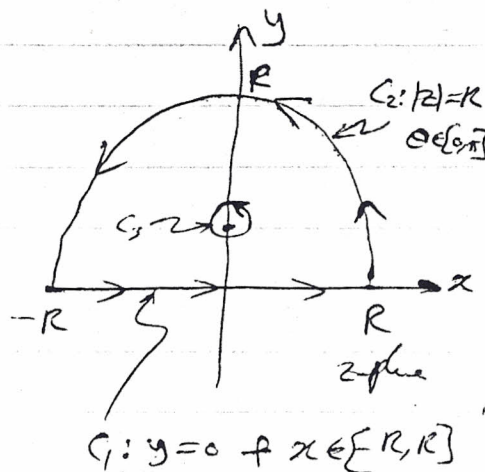 y
R
C₂: |z|=R
θ∈[0,π]
C₃
x
-R
R
z-plane
C₁: y=0 f x∈[-R,R]